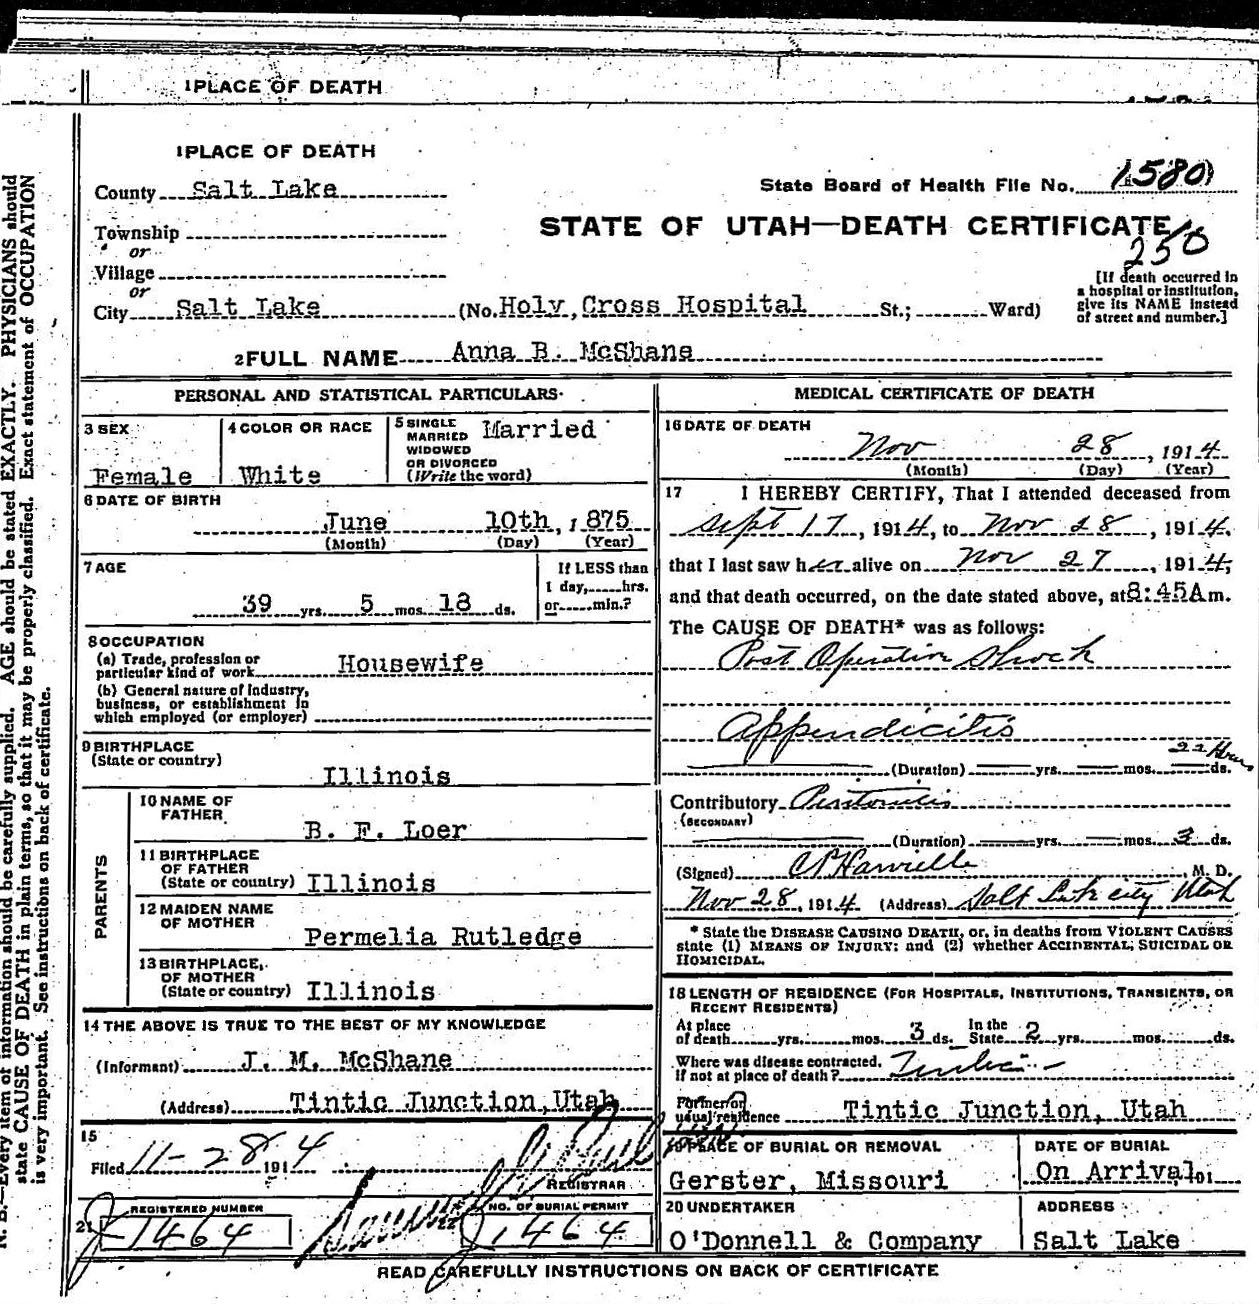 1 PLACE OF DEATH
1 PLACE OF DEATH
County Salt Lake
State Board of Health File No. 1580
Township
STATE OF UTAH—DEATH CERTIFICATE
250
or
Village
or
City Salt Lake (No. Holy Cross Hospital St.; Ward)
[If death occurred in
a hospital or institution,
give its NAME instead
of street and number.]
2 FULL NAME Anna B. McShane
PERSONAL AND STATISTICAL PARTICULARS
3 SEX
Female
4 COLOR OR RACE
White
5 SINGLE
MARRIED
WIDOWED
OR DIVORCED
(Write the word)
Married
6 DATE OF BIRTH
June 10th, 1875
(Month) (Day) (Year)
7 AGE
39 yrs. 5 mos. 18 ds.
If LESS than
1 day, hrs.
or min.?
8 OCCUPATION
(a) Trade, profession or
particular kind of work Housewife
(b) General nature of Industry,
business, or establishment in
which employed (or employer)
9 BIRTHPLACE
(State or country)
Illinois
PARENTS
10 NAME OF
FATHER
B. F. Loer
11 BIRTHPLACE
OF FATHER
(State or country) Illinois
12 MAIDEN NAME
OF MOTHER
Permelia Rutledge
13 BIRTHPLACE
OF MOTHER
(State or country) Illinois
14 THE ABOVE IS TRUE TO THE BEST OF MY KNOWLEDGE
(Informant) J. M. McShane
(Address) Tintic Junction, Utah
15
Filed 11-28 1914
REGISTRAR
21
REGISTERED NUMBER
1464
22 NO. OF BURIAL PERMIT
1464
MEDICAL CERTIFICATE OF DEATH
16 DATE OF DEATH
Nov 28, 1914
(Month) (Day) (Year)
17 I HEREBY CERTIFY, That I attended deceased from
Sept 17, 1914, to Nov 28, 1914,
that I last saw her alive on Nov 27, 1914,
and that death occurred, on the date stated above, at 8:45A m.
The CAUSE OF DEATH* was as follows:
Post Operative Shock
Appendicitis
22 Hours
(Duration) yrs. mos. ds.
Contributory Peritonitis
(SECONDARY)
(Duration) yrs. mos. 3 ds.
(Signed) M. D.
Nov 28, 1914 (Address) Salt Lake City Utah
* State the DISEASE CAUSING DEATH, or, in deaths from VIOLENT CAUSES
state (1) MEANS OF INJURY; and (2) whether ACCIDENTAL, SUICIDAL OR
HOMICIDAL.
18 LENGTH OF RESIDENCE (FOR HOSPITALS, INSTITUTIONS, TRANSIENTS, OR
RECENT RESIDENTS)
At place
of death yrs. mos. 3 ds.
In the
State 2 yrs. mos. ds.
Where was disease contracted,
If not at place of death?
Former or
usual residence Tintic Junction, Utah
19 PLACE OF BURIAL OR REMOVAL
Gerster, Missouri
DATE OF BURIAL
On Arrival 191
20 UNDERTAKER
O'Donnell & Company
ADDRESS
Salt Lake
READ CAREFULLY INSTRUCTIONS ON BACK OF CERTIFICATE
N. B.—Every item of information should be carefully supplied. AGE should be stated EXACTLY. PHYSICIANS should
state CAUSE OF DEATH in plain terms, so that it may be properly classified. Exact statement of OCCUPATION
is very important. See instructions on back of certificate.